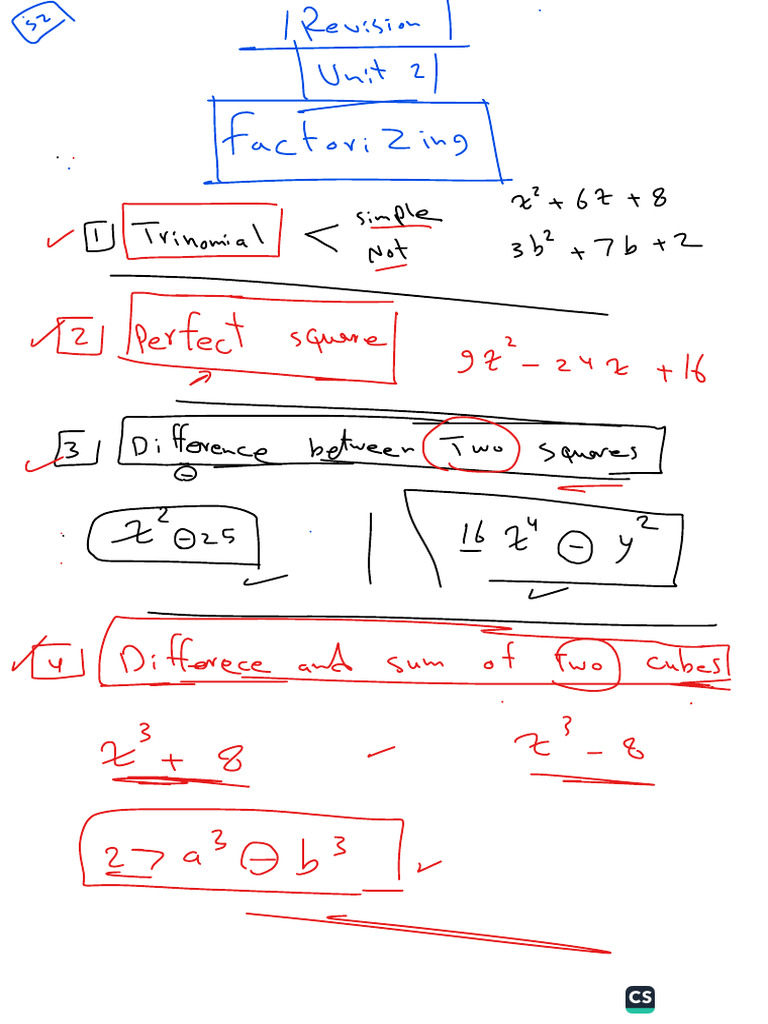 32
Revision
Unit 2
Factorizing
1 Trinomial < simple z² + 6z + 8
Not 3b² + 7b + 2
2 Perfect square 9z² - 24z + 16
3 Difference between Two squares
z² - 25 | 16 z⁴ - y²
4 Differece and sum of Two cubes
z³ + 8 - z³ - 8
27 a³ - b³
CS